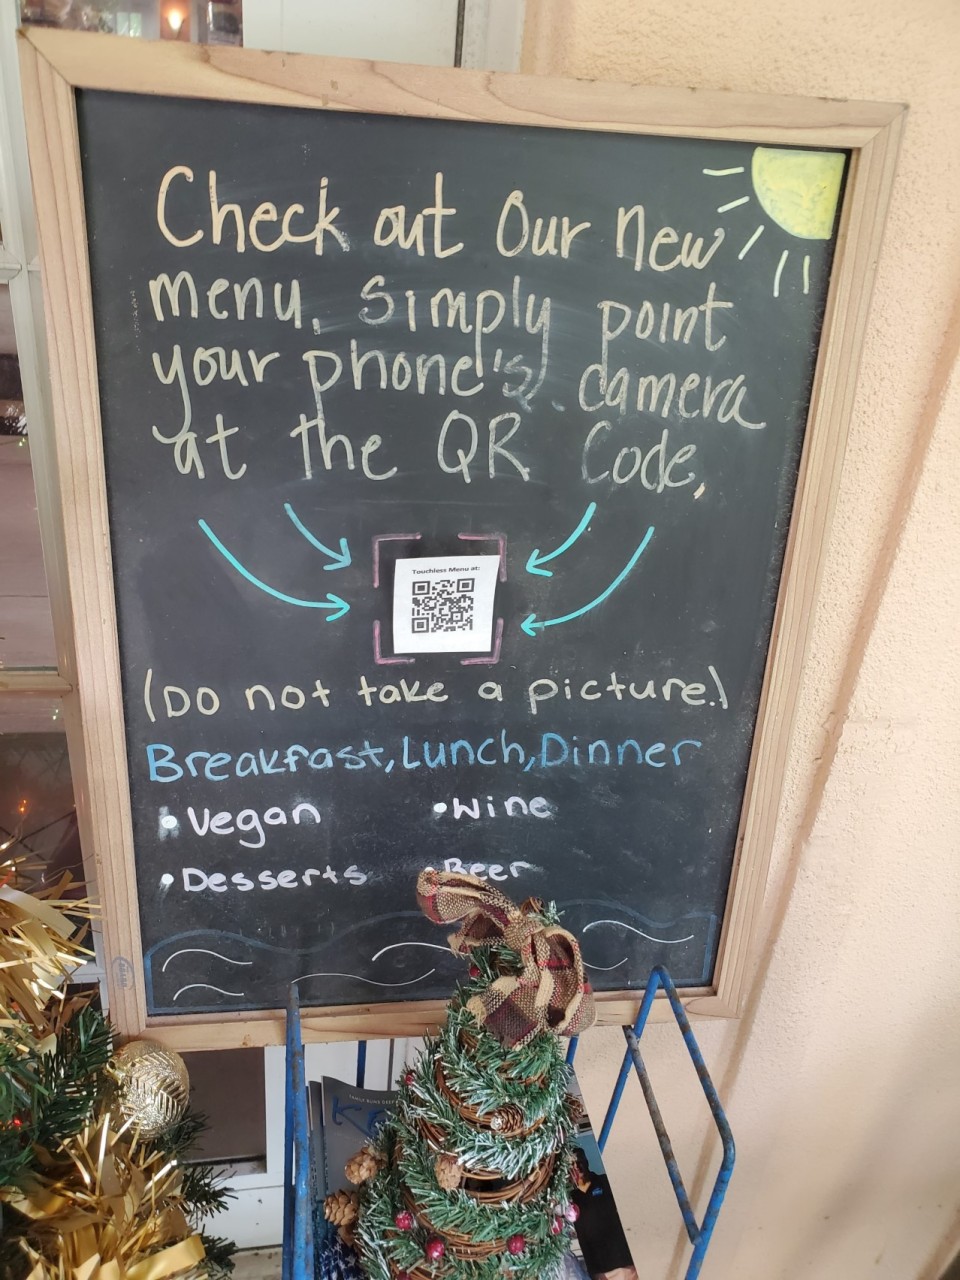 Check out Our New
menu, simply point
your phone's camera
at the QR Code,
Touchless Menu at:
(Do not take a picture.)
Breakfast, Lunch, Dinner
• Vegan
• Wine
• Desserts
• Beer